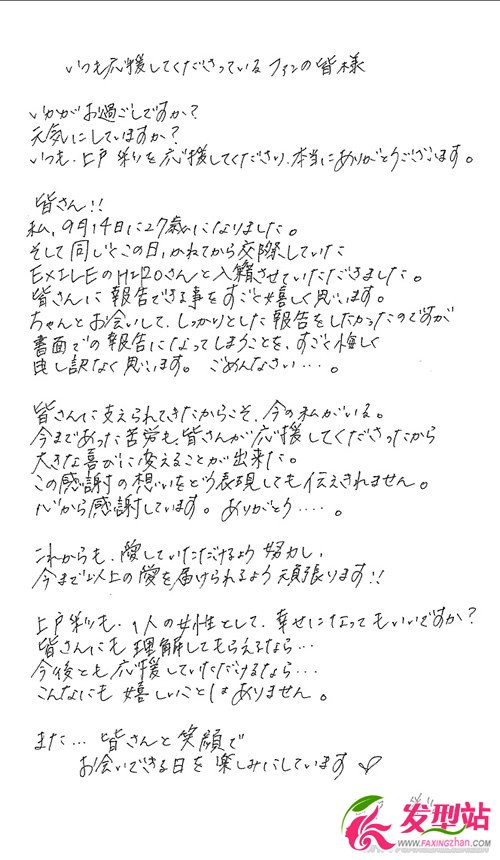 いつも応援してくださっているファンの皆様
いかがお過ごしですか？
元気にしていますか？
いつも、上戸彩を応援してくださり、本当にありがとうございます。
皆さん!!
私、9月14日に27歳になりました。
そして同じこの日、かねてから交際していた
EXILEのHIROさんと入籍させていただきました。
皆さんに報告できる事をすごく嬉しく思います。
ちゃんとお会いして、しっかりとした報告をしたかったのですが
書面での報告になってしまうことを、すごく悔しく
申し訳なく思います。 ごめんなさい・・・。
皆さんに支えられてきたからこそ、今の私がいる。
今まであった苦労も、皆さんが応援してくださったから
大きな喜びに変えることが出来た。
この感謝の想いをどう表現しても伝えきれません。
心から感謝しています。 ありがとう・・・・。
これからも、愛していただけるよう努力し、
今まで以上の愛を届けられるよう頑張ります!!
上戸彩も、1人の女性として、幸せになってもいいですか？
皆さんにも理解してもらえるなら・・・
今後とも応援していただけるなら・・・
こんなにも嬉しいことはありません。
また・・・ 皆さんと笑顔で
お会いできる日を楽しみにしています♡
发型站
www.FAXINGZHAN.com